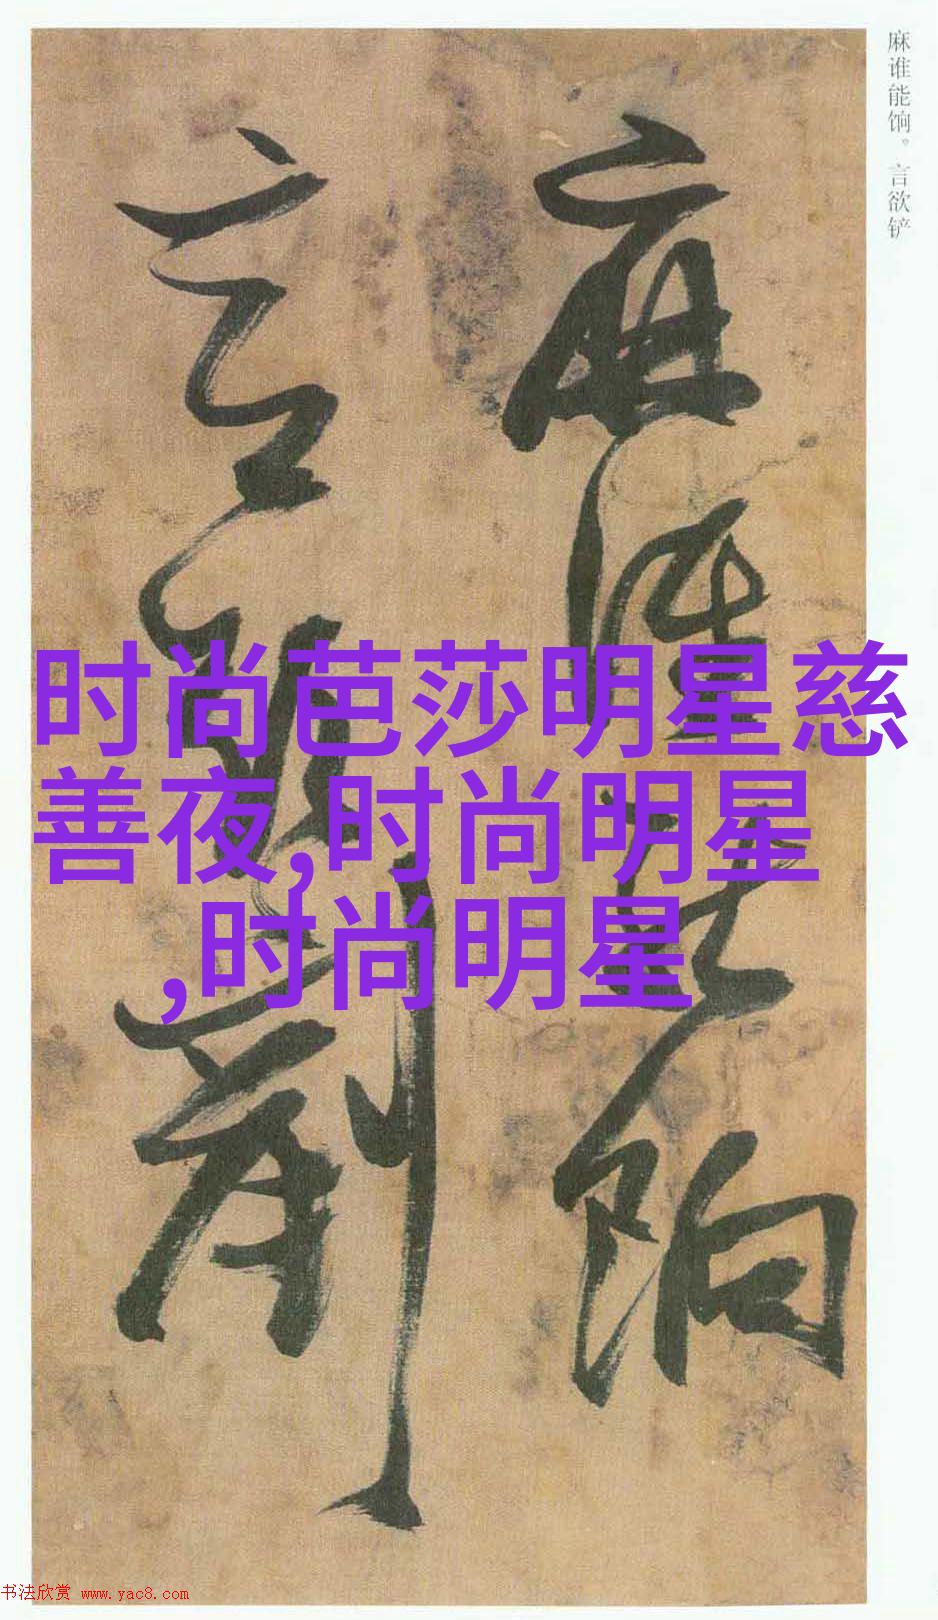 麻谁能饷。言欲铲
麻谁能饷
言欲刬
时尚芭莎明星慈
善夜,时尚明星
,时尚明星
书法欣赏 www.yac8.com